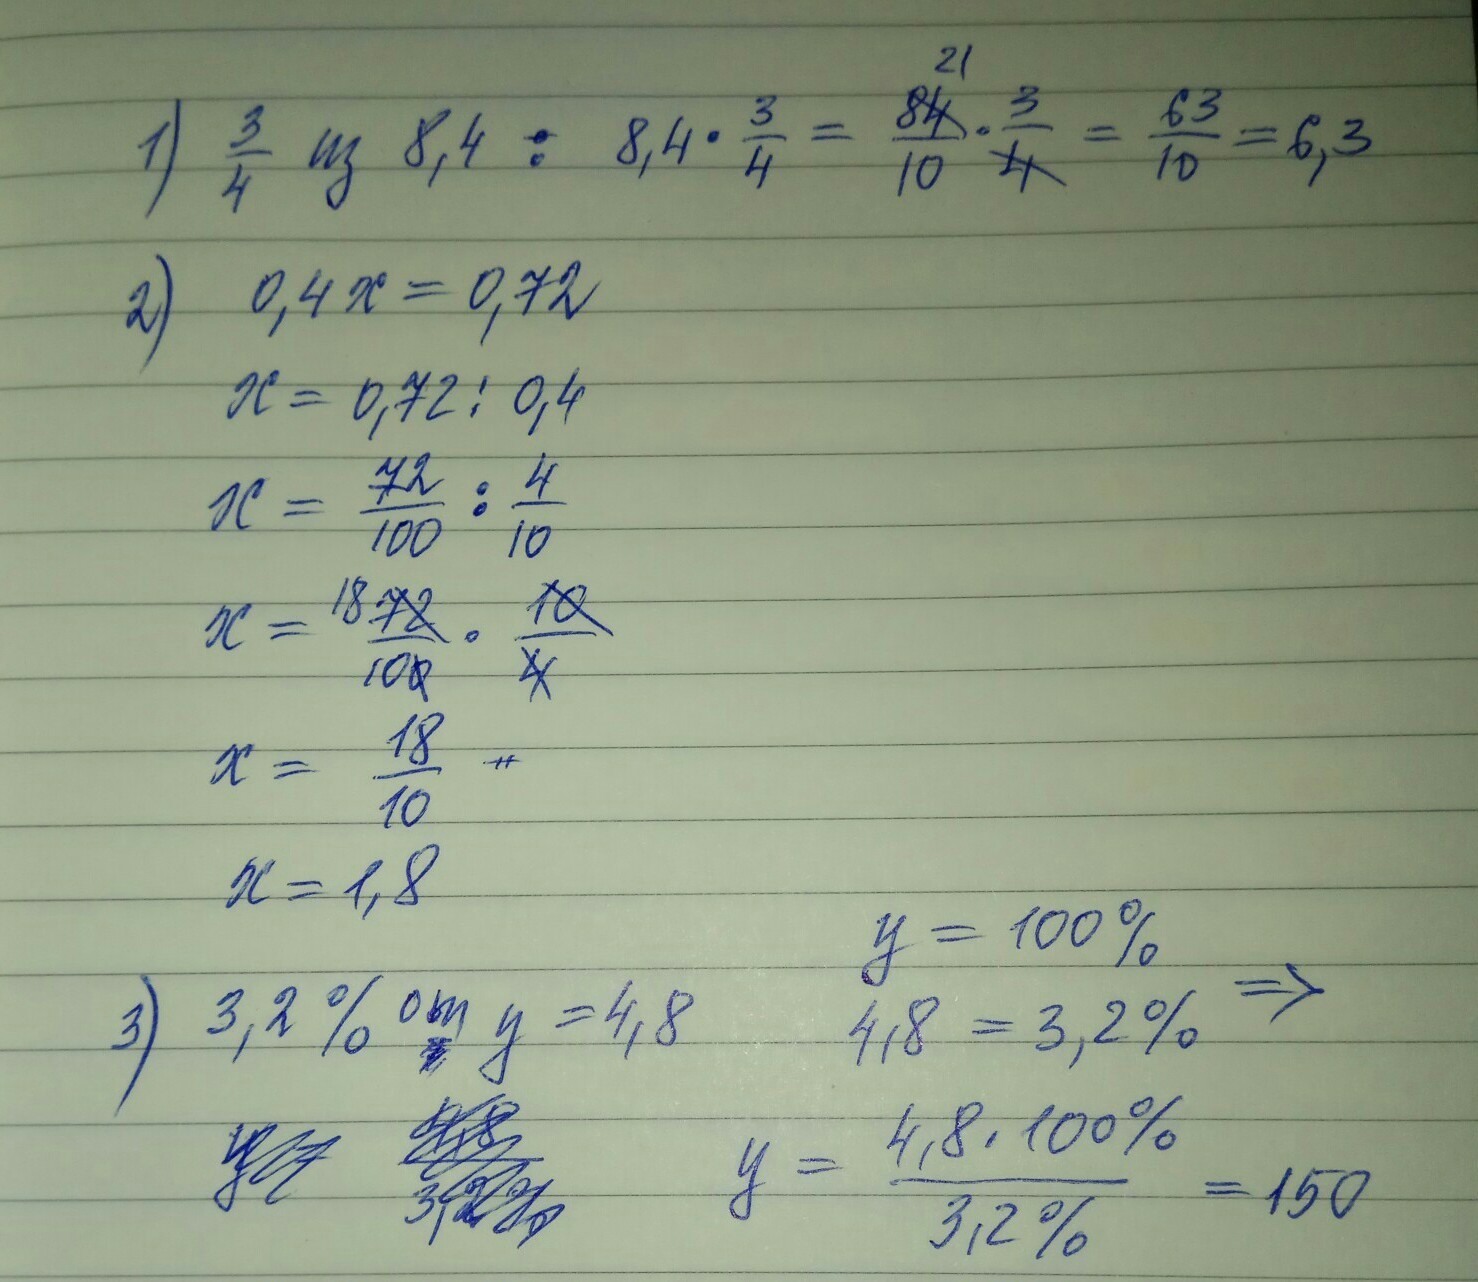 1) 3/4 из 8,4 : 8,4 · 3/4 = 84/10 · 3/4 = 63/10 = 6,3
21
2) 0,4x = 0,72
x = 0,72 : 0,4
x = 72/100 : 4/10
x = 18 72/100 · 10/4
x = 18/10 =
x = 1,8
3) 3,2% от y = 4,8
y = 100%
4,8 = 3,2% ⇒
y = 4,8 · 100% / 3,2% = 150